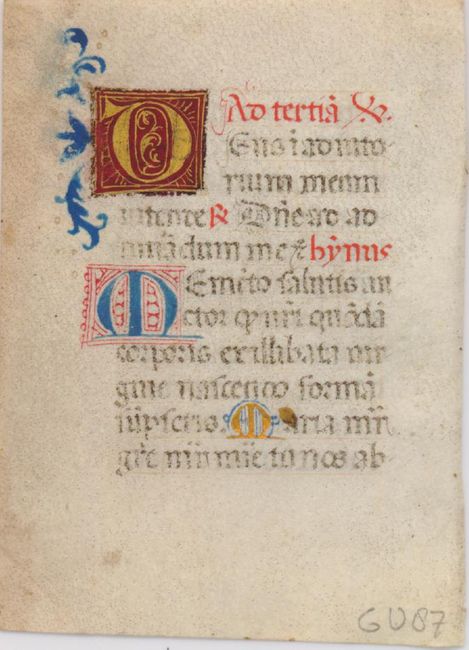 Ad tertiā V.
Deus ī adiuto
rium meum
intende R Dñe ad ad
iuuādum me & hȳnus
Memēto salutis au
ctor qp nr̄i quōdā
corporis ex illibata uir
gine nascendo formā
sūpseris. Maria mr̄
gr̄e mr̄ mīe tu nos ab
GU87